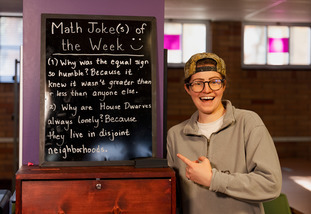 Math Joke(s) of
the Week :)
(1) Why was the equal sign
so humble? Because it
knew it wasn't greater than
or less than anyone else.
(2) Why are House Dwarves
always lonely? Because
they live in disjoint
neighborhoods.